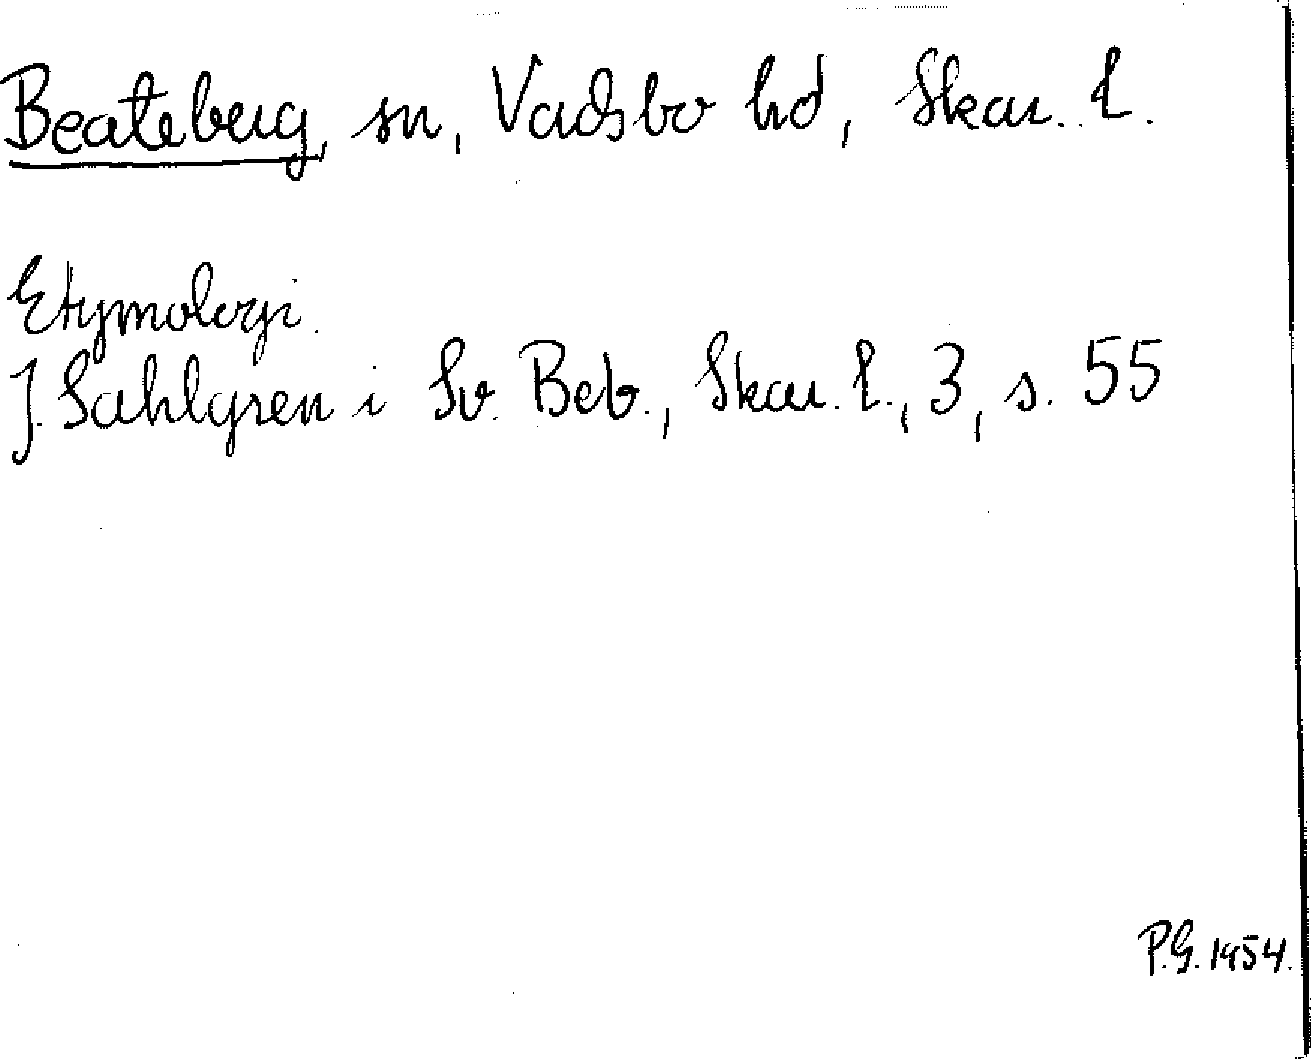 Beateberg, sn, Vadsbo hd, Skar. l.
Etymologi.
J. Sahlgren i Sv. Beb., Skar. l., 3, s. 55
P.G. 1954.